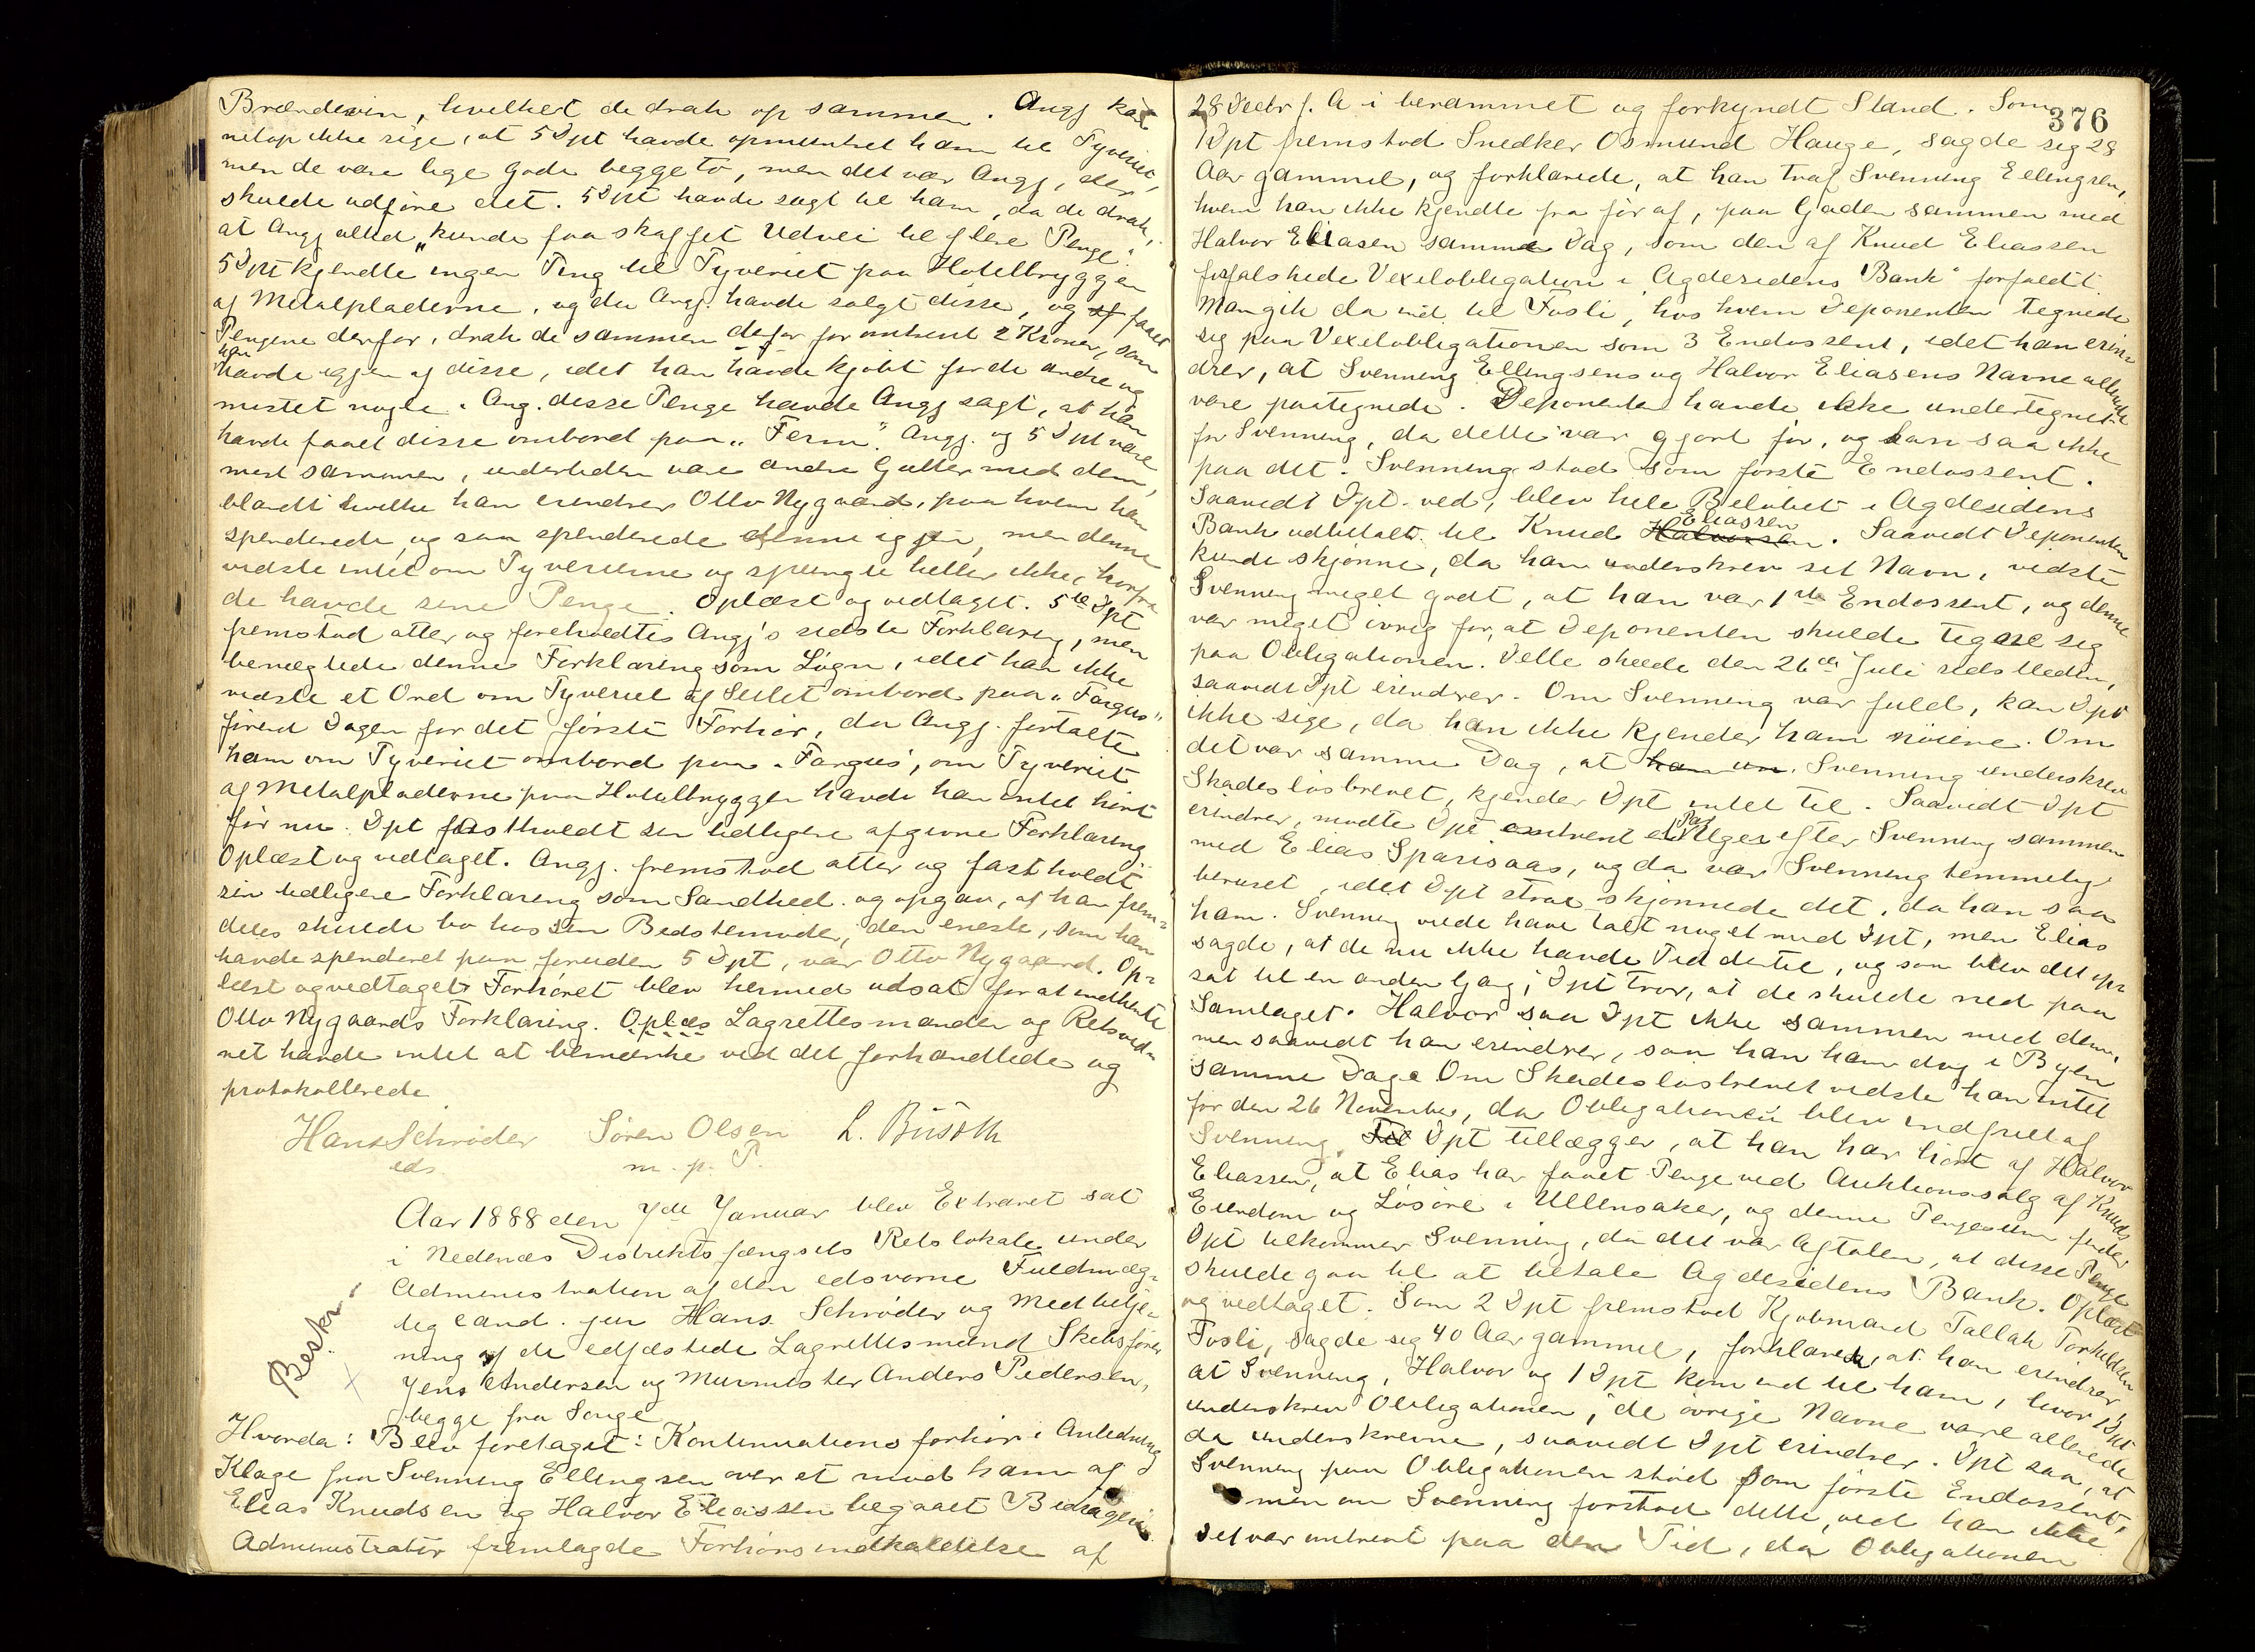 Brændevin, hvilket de drak op sammen. Angj kan
netop ikke sige, at 5 Dpt havde opmuntret ham til Tyveriet,
men de vare lige gode begge to, men det var Angj, der
skulde udføre det. 5 Dpt havde sagt til ham, da de drak,
at Angj altid "kunde faa skaffet Udvei til flere Penge".
5 Dpt kjendte ingen Ting til Tyveriet paa Hotelbryggen
af Metalpladerne, og da Angj. havde solgt disse, og af faaet
Pengene derfor, drak de sammen defor for omtrent 2 Kroner, som
han
havde igjen af disse, idet han havde kjøbt for de andre og
mistet nogle. Ang. disse Penge havde Angj sagt, at han
havde faaet disse ombord paa "Ferm". Angj. og 5 Dpt vare
mest sammen, undertiden vare andre Gutter med dem,
blandt hvilke han erindrer Otto Nygaard, paa hvem han
spenderede, og saa spenderede denne igjen, men denne
vidste intet om Tyverierne og spurgte heller ikke, hvorfra
de havde sine Penge. Oplæst og vedtaget. 5te Dpt
fremstod atter og foreholdtes Angj's sidste Forklaring, men
benægtede denne Forklaring som Løgn, idet han ikke
vidste et Ord om Tyveriet af Seilet ombord paa "Fargus"
førend Dagen før det første Forhør, da Angj. fortalte
ham om Tyveriet ombord paa "Fargus", om Tyveriet
af Metalpladerne paa Hotelbryggen havde han intet hørt
før nu. Dpt fastholdt sin tidligere afgivne Forklaring
Oplæst og vedtaget. Angj. fremstod atter og fastholdt
sin tidligere Forklaring som Sandhed og opgav, at han frem-
deles skulde bo hos sin Bedstemoder, den eneste, som han
havde spenderet paa foruden 5 Dpt, var Otto Nygaard. Op-
læst og vedtaget. Forhøret blev hermed udsat for at indhente
Otto Nygaards Forklaring. Oplæs Lagrettesmænden og Retsvid-
net havde intet at bemærke ved det forhandlede og
protokollerede
Hans Schrøder Søren Olsen L. Büsoth
eds. m. p. P.
Aar 1888 den 7de Januar blev Extraret sat
i Nedenæs Distriktsfængsels Retslokale under
Administration af den edsvorne Fuldmæg-
tig cand. jur Hans Schrøder og Medbetje-
ning af de edfæstede Lagrettesmænd Skibsfører
Jens Andersen og Murmester Anders Pedersen,
begge fra Songe
Beskr.
Hvorda: Blev foretaget: Kontinuationsforhør i Anledning
Klage fra Svenning Ellingsen over et mod ham af
Elias Knudsen og Halvor Eliassen begaaet Bedrageri
Administrator fremlagde Forhørsindkaldelse af
376
28 Decbr f. A i berammet og forkyndt Stand. Som
1 Dpt fremstod Snedker Osmund Hauge, sagde sig 28
Aar gammel, og forklarede, at han traf Svenning Ellingsen,
hvem han ikke kjendte fra før af, paa Gaden sammen med
Halvor Eliasen samme Dag, som den af Knud Eliassen
forfalskede Vexelobligation i "Agdesidens Bank" forfaldt.
Man gik da ind til Fosli, hos hvem Deponenten tegnede
sig paa Vexelobligationen som 3 Endossent, idet han erin-
drer, at Svenning Ellingsens og Halvor Eliasens Navne allerede
vare paategnede. Deponenten havde ikke undertegnet
for Svenning, da dette var gjort før, og han saa ikke
paa det. Svenning stod som første Endossent.
Saavidt Dpt. ved, blev hele Beløbet i Agdesidens
Eliassen
Bank udbetalt til Knud Halvorsen. Saavidt Deponenten
kunde skjønne, da han underskrev sit Navn, vidste
Svenning meget godt, at han var 1ste Endossent, og denne
var meget ivrig for, at Deponenten skulde tegne sig
paa Obligationen. Dette skede den 26de Juli sidstleden,
saavidt Dpt erindrer. Om Svenning var fuld, kan Dpt
ikke sige, da han ikke kjender ham nøiere. Om
det var samme Dag, at han un. Svenning underskrev
Skadesløsbrevet, kjender Dpt intet til. Saavidt Dpt
Par
erindrer, mødte Dpt omtrent et Uger efter Svenning sammen
med Elias Sparisaas, og da var Svenning temmelig
beruset, idet Dpt strax skjønnede det, da han saa
ham. Svenning vilde have talt noget med Dpt, men Elias
sagde, at de nu ikke havde Tid dertil, og saa blev det op-
sat til en anden Gang; Dpt tror, at de skulde ned paa
Samlaget. Halvor saa Dpt ikke sammen med dem,
men saavidt han erindrer, saa han ham dog i Byen
samme Dage. Om Skadesløsbrevet vidste han intet
før den 26 November, da Obligationen blev indfriet af
Svenning. Til Dpt tillægger, at han har hørt af Halvor
Eliassen, at Elias har faaet Penge ved Auktionssalg af Knuds
Eiendom og Løsøre i Ullensaker, og denne Pengesum finder
Dpt tilkommer Svenning, da det var Aftalen, at disse Penge
skulde gaa til at betale Agdesidens Bank. Oplæst
og vedtaget. Som 2 Dpt fremstod Kjøbmand Tallak Torkildsen
Fosli, sagde sig 40 Aar gammel, forklarede, at han erindrer,
at Svenning, Halvor og 1 Dpt kom ind til ham, hvor 1 Dpt
underskrev Obligationen, de øvrige Navne vare allerede
da underskrevne, saavidt Dpt erindrer. Dpt saa, at
Svenning paa Obligationen stod som første Endossent,
men om Svenning forstod dette, ved han ikke
det var omtrent paa den Tid, da Obligationen